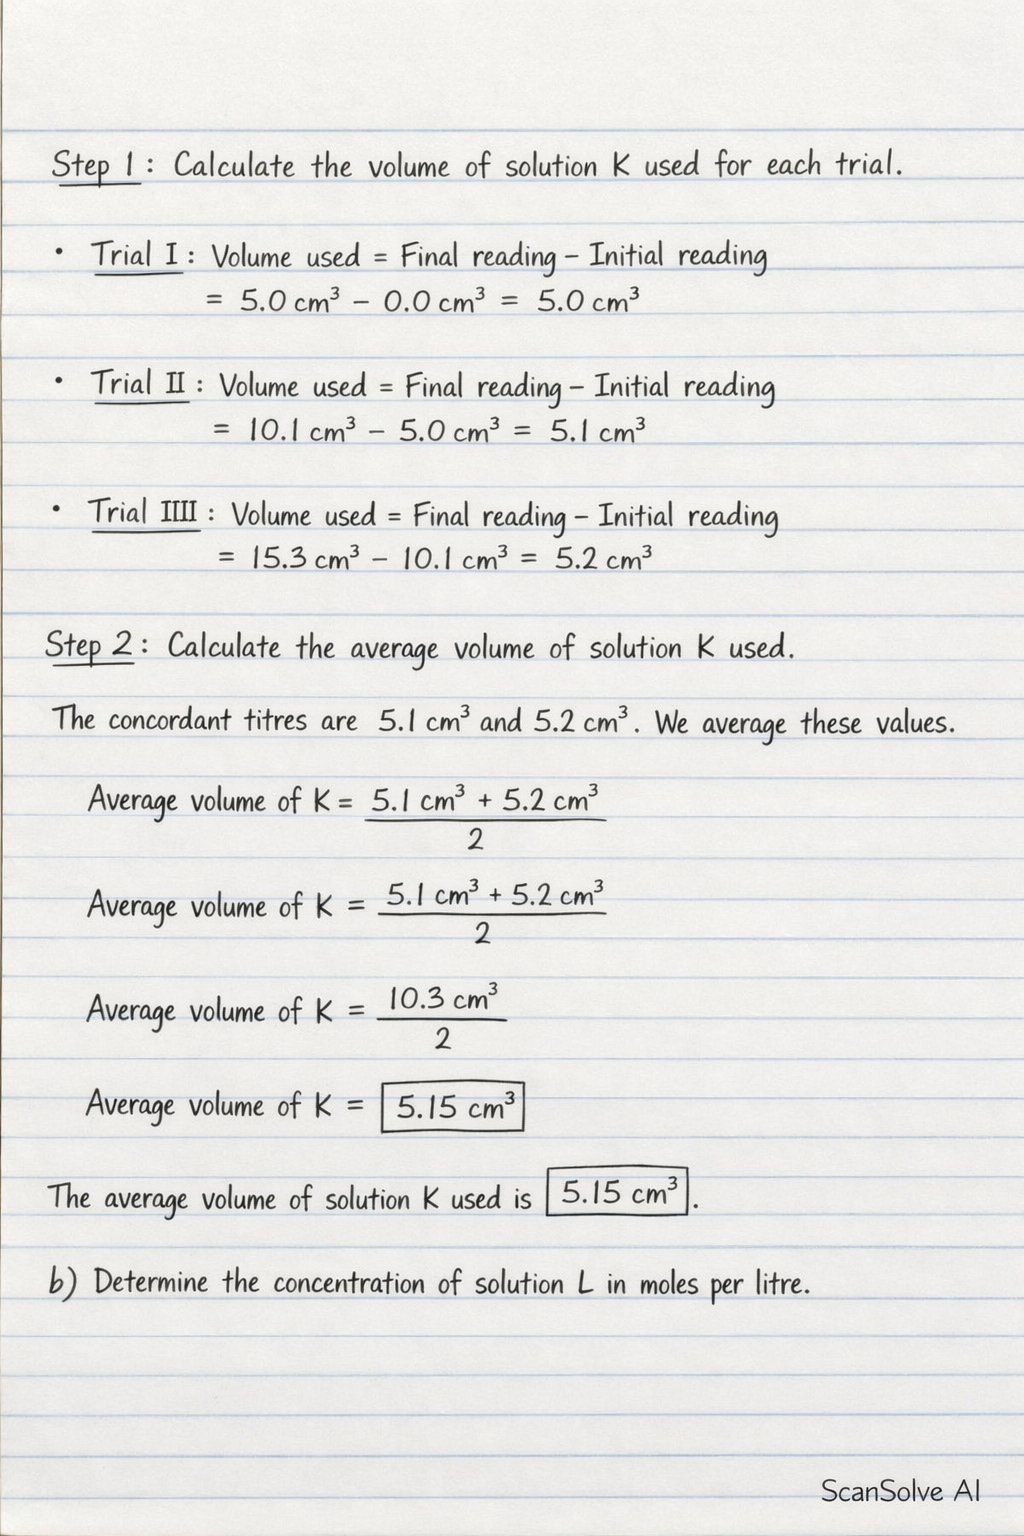 Step 1: Calculate the volume of solution K used for each trial.
• Trial I: Volume used = Final reading – Initial reading
= 5.0 cm³ – 0.0 cm³ = 5.0 cm³
• Trial II: Volume used = Final reading – Initial reading
= 10.1 cm³ – 5.0 cm³ = 5.1 cm³
• Trial IIII: Volume used = Final reading – Initial reading
= 15.3 cm³ – 10.1 cm³ = 5.2 cm³
Step 2: Calculate the average volume of solution K used.
The concordant titres are 5.1 cm³ and 5.2 cm³. We average these values.
Average volume of K = 5.1 cm³ + 5.2 cm³
2
Average volume of K = 5.1 cm³ + 5.2 cm³
2
Average volume of K = 10.3 cm³
2
Average volume of K = 5.15 cm³
The average volume of solution K used is 5.15 cm³.
b) Determine the concentration of solution L in moles per litre.
ScanSolve AI